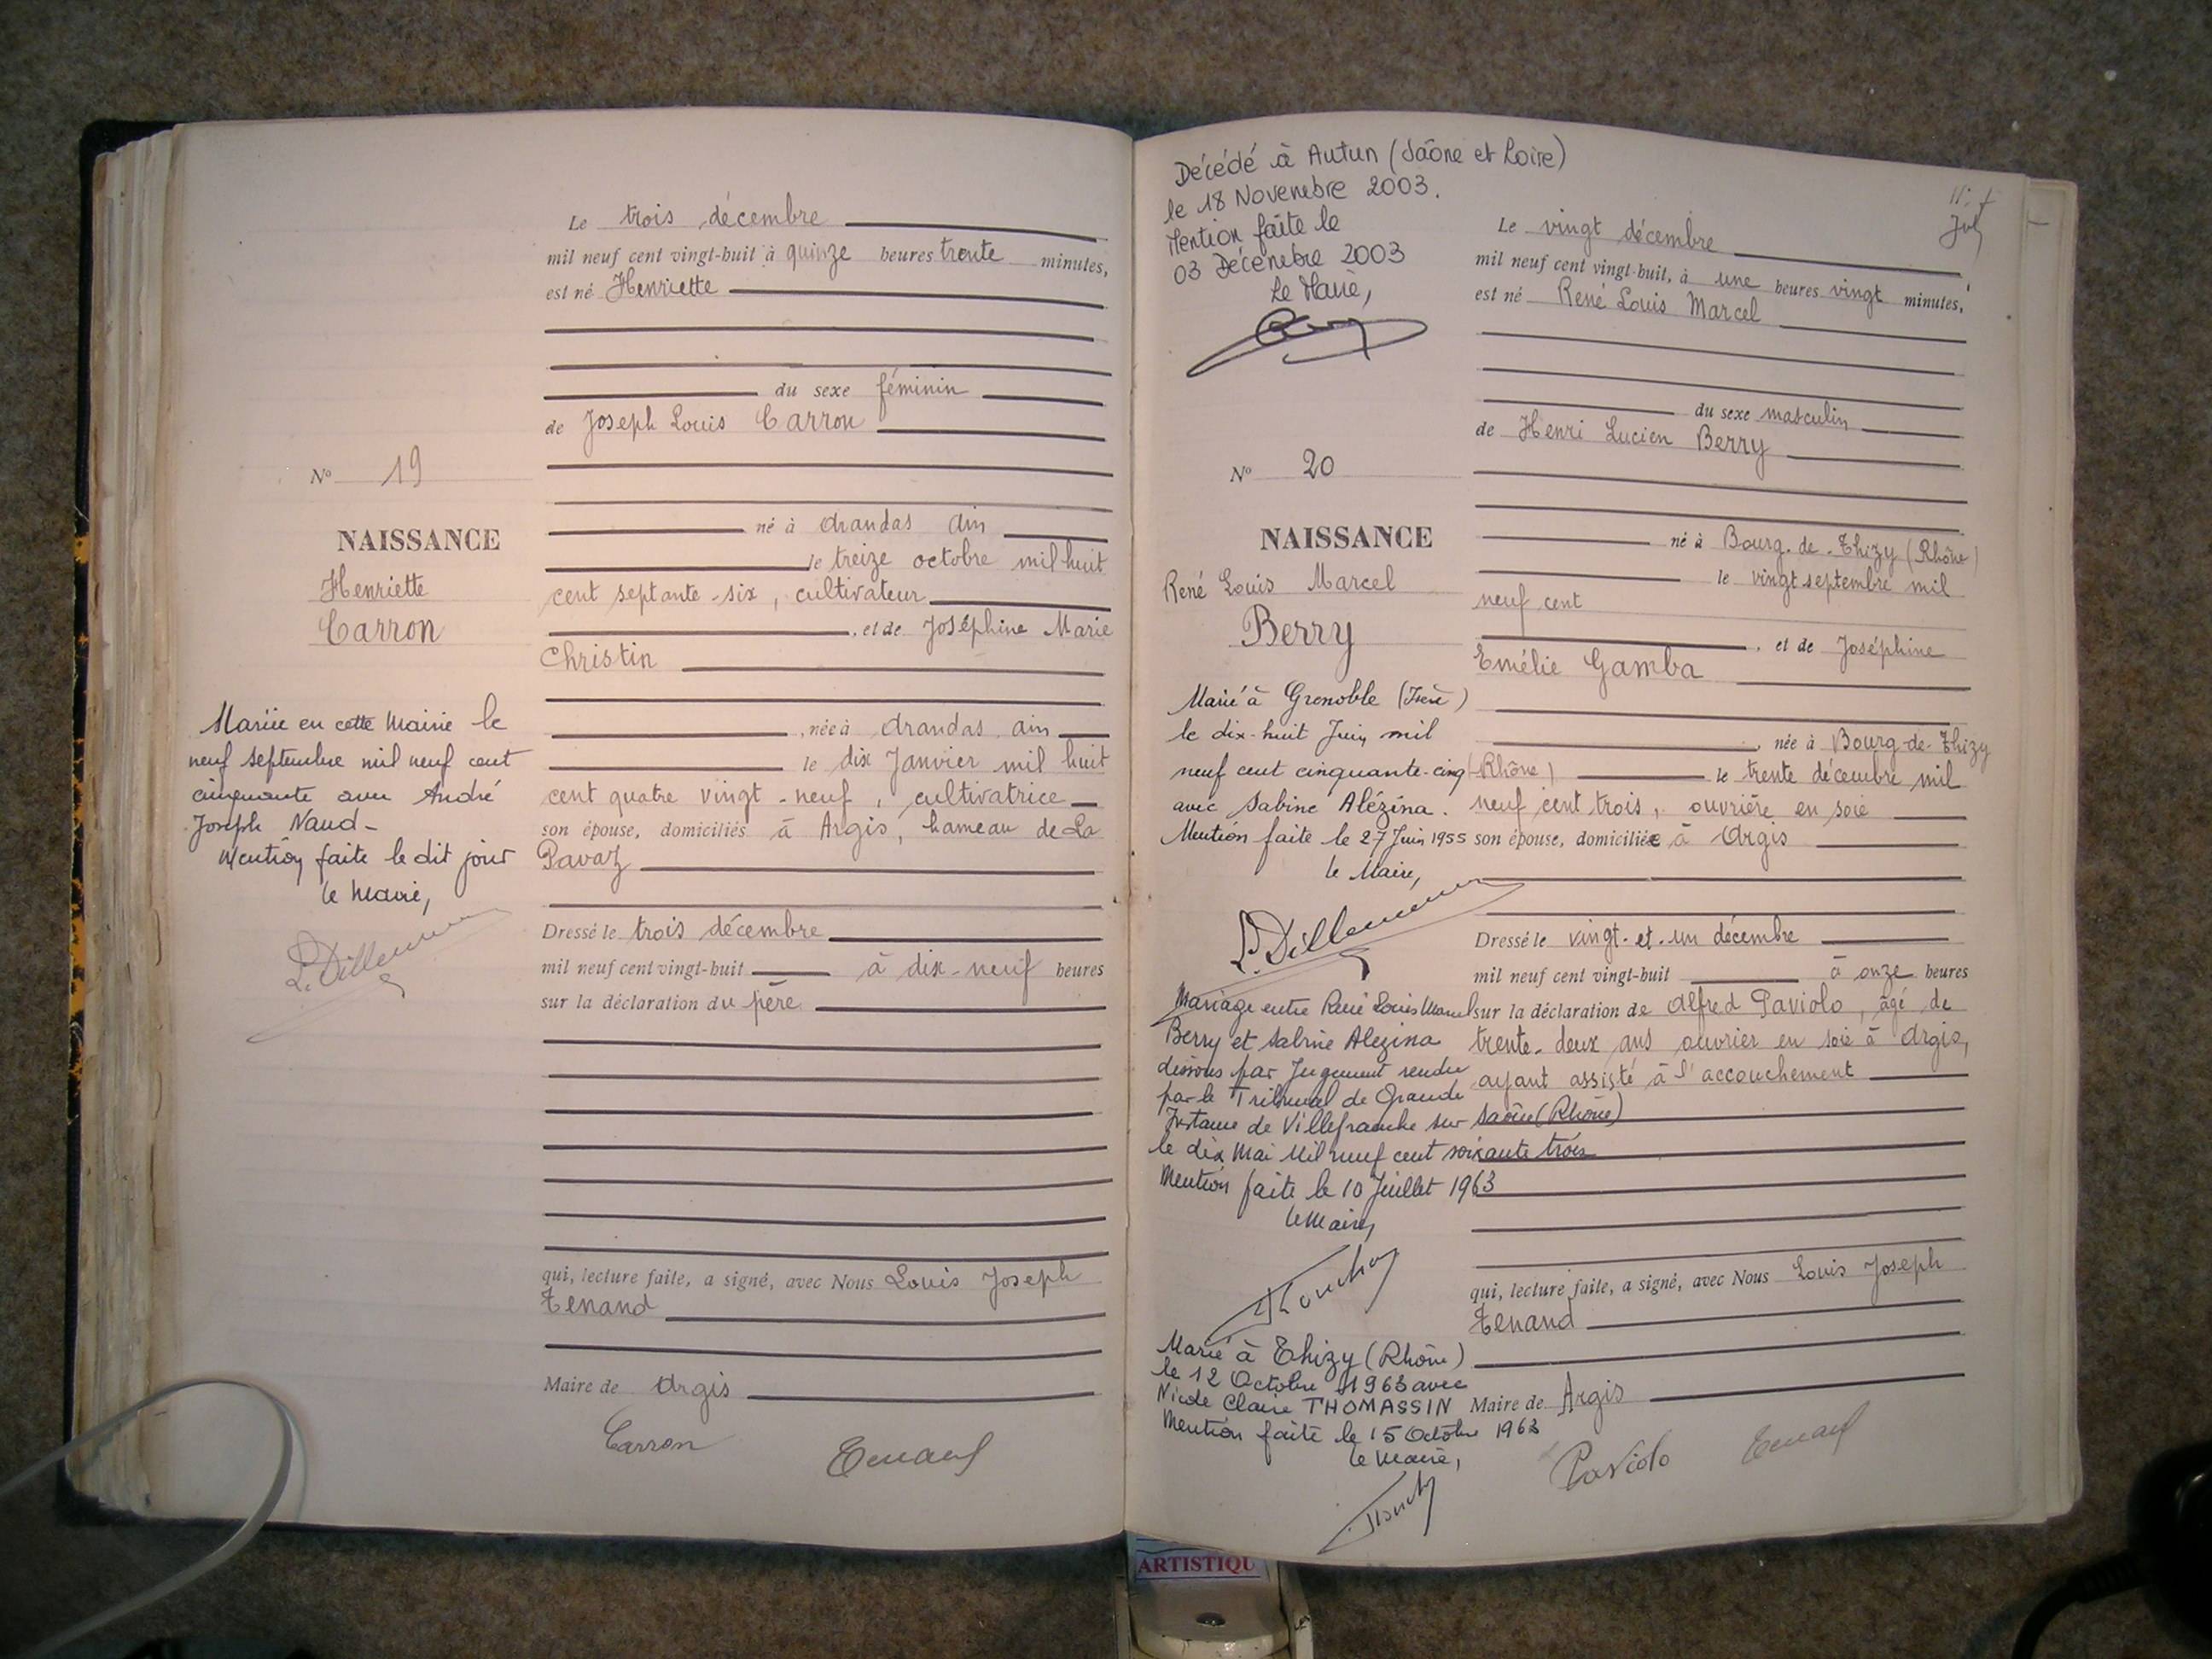 Le trois décembre
mil neuf cent vingt-huit à quinze heures trente minutes,
est né Henriette
du sexe féminin
de Joseph Louis Carron
N° 19
né à Arandas Ain
NAISSANCE
le treize octobre mil huit
Henriette
cent septante-six, cultivateur
Carron
, et de Joséphine Marie
Christin
Mariée en cette Mairie le
neuf septembre mil neuf cent
cinquante avec André
Joseph Naud-
Mention faite le dit jour
le Maire,
L. Dillemann
, née à Arandas Ain
le dix Janvier mil huit
cent quatre vingt-neuf, cultivatrice
son épouse, domiciliés à Argis, hameau de La
Pavaz
Dressé le trois décembre
mil neuf cent vingt-huit à dix-neuf heures
sur la déclaration du père
qui, lecture faite, a signé, avec Nous Louis Joseph
Tenand
Maire de Argis
Carron Tenand
Décédé à Autun (Saône et Loire)
le 18 Novembre 2003.
Mention faite le
03 Décembre 2003
Le Maire,
Le vingt décembre
mil neuf cent vingt-huit, à une heures vingt minutes,
est né René Louis Marcel
du sexe masculin
de Henri Lucien Berry
N° 20
NAISSANCE
René Louis Marcel
Berry
né à Bourg-de-Thizy (Rhône)
le vingt septembre mil
neuf cent
, et de Joséphine
Emélie Gamba
Marié à Grenoble (Isère)
le dix-huit Juin mil
neuf cent cinquante-cinq
avec Sabine Alézina.
Mention faite le 27 Juin 1955
le Maire,
L. Dillemann
, née à Bourg-de-Thizy
(Rhône) le trente décembre mil
neuf cent trois, ouvrière en soie
son épouse, domiciliée à Argis
Dressé le vingt-et-un décembre
mil neuf cent vingt-huit à onze heures
sur la déclaration de Alfred Paviolo, âgé de
trente-deux ans ouvrier en soie à Argis,
ayant assisté à l'accouchement
Mariage entre René Louis Marcel
Berry et Sabine Alézina
dissous par Jugement rendu
par le Tribunal de Grande
Instance de Villefranche sur Saône (Rhône)
le dix Mai Mil neuf cent soixante trois
Mention faite le 10 Juillet 1963
le Maire,
Marié à Thizy (Rhône)
le 12 Octobre 1963 avec
Nicole Claire THOMASSIN
Mention faite le 15 Octobre 1963
le Maire,
qui, lecture faite, a signé, avec Nous Louis Joseph
Tenand
Maire de Argis
Paviolo Tenand
ARTISTIQU